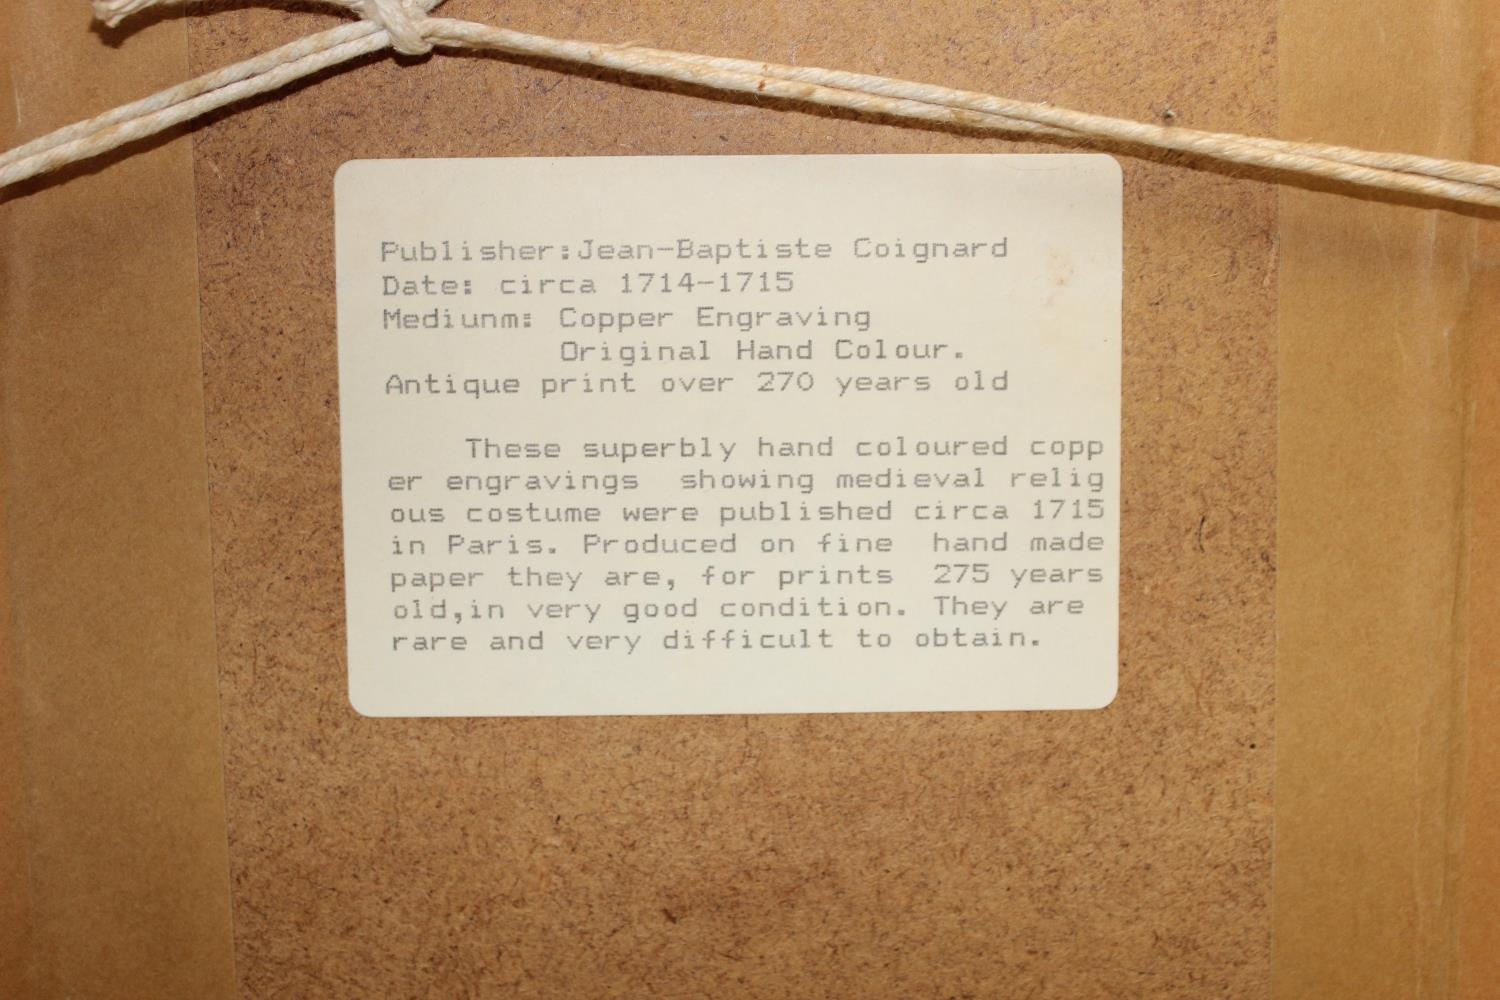 Publisher:Jean-Baptiste Coignard
Date: circa 1714-1715
Mediunm: Copper Engraving
Original Hand Colour.
Antique print over 270 years old
These superbly hand coloured copp
er engravings showing medieval relig
ous costume were published circa 1715
in Paris. Produced on fine hand made
paper they are, for prints 275 years
old,in very good condition. They are
rare and very difficult to obtain.